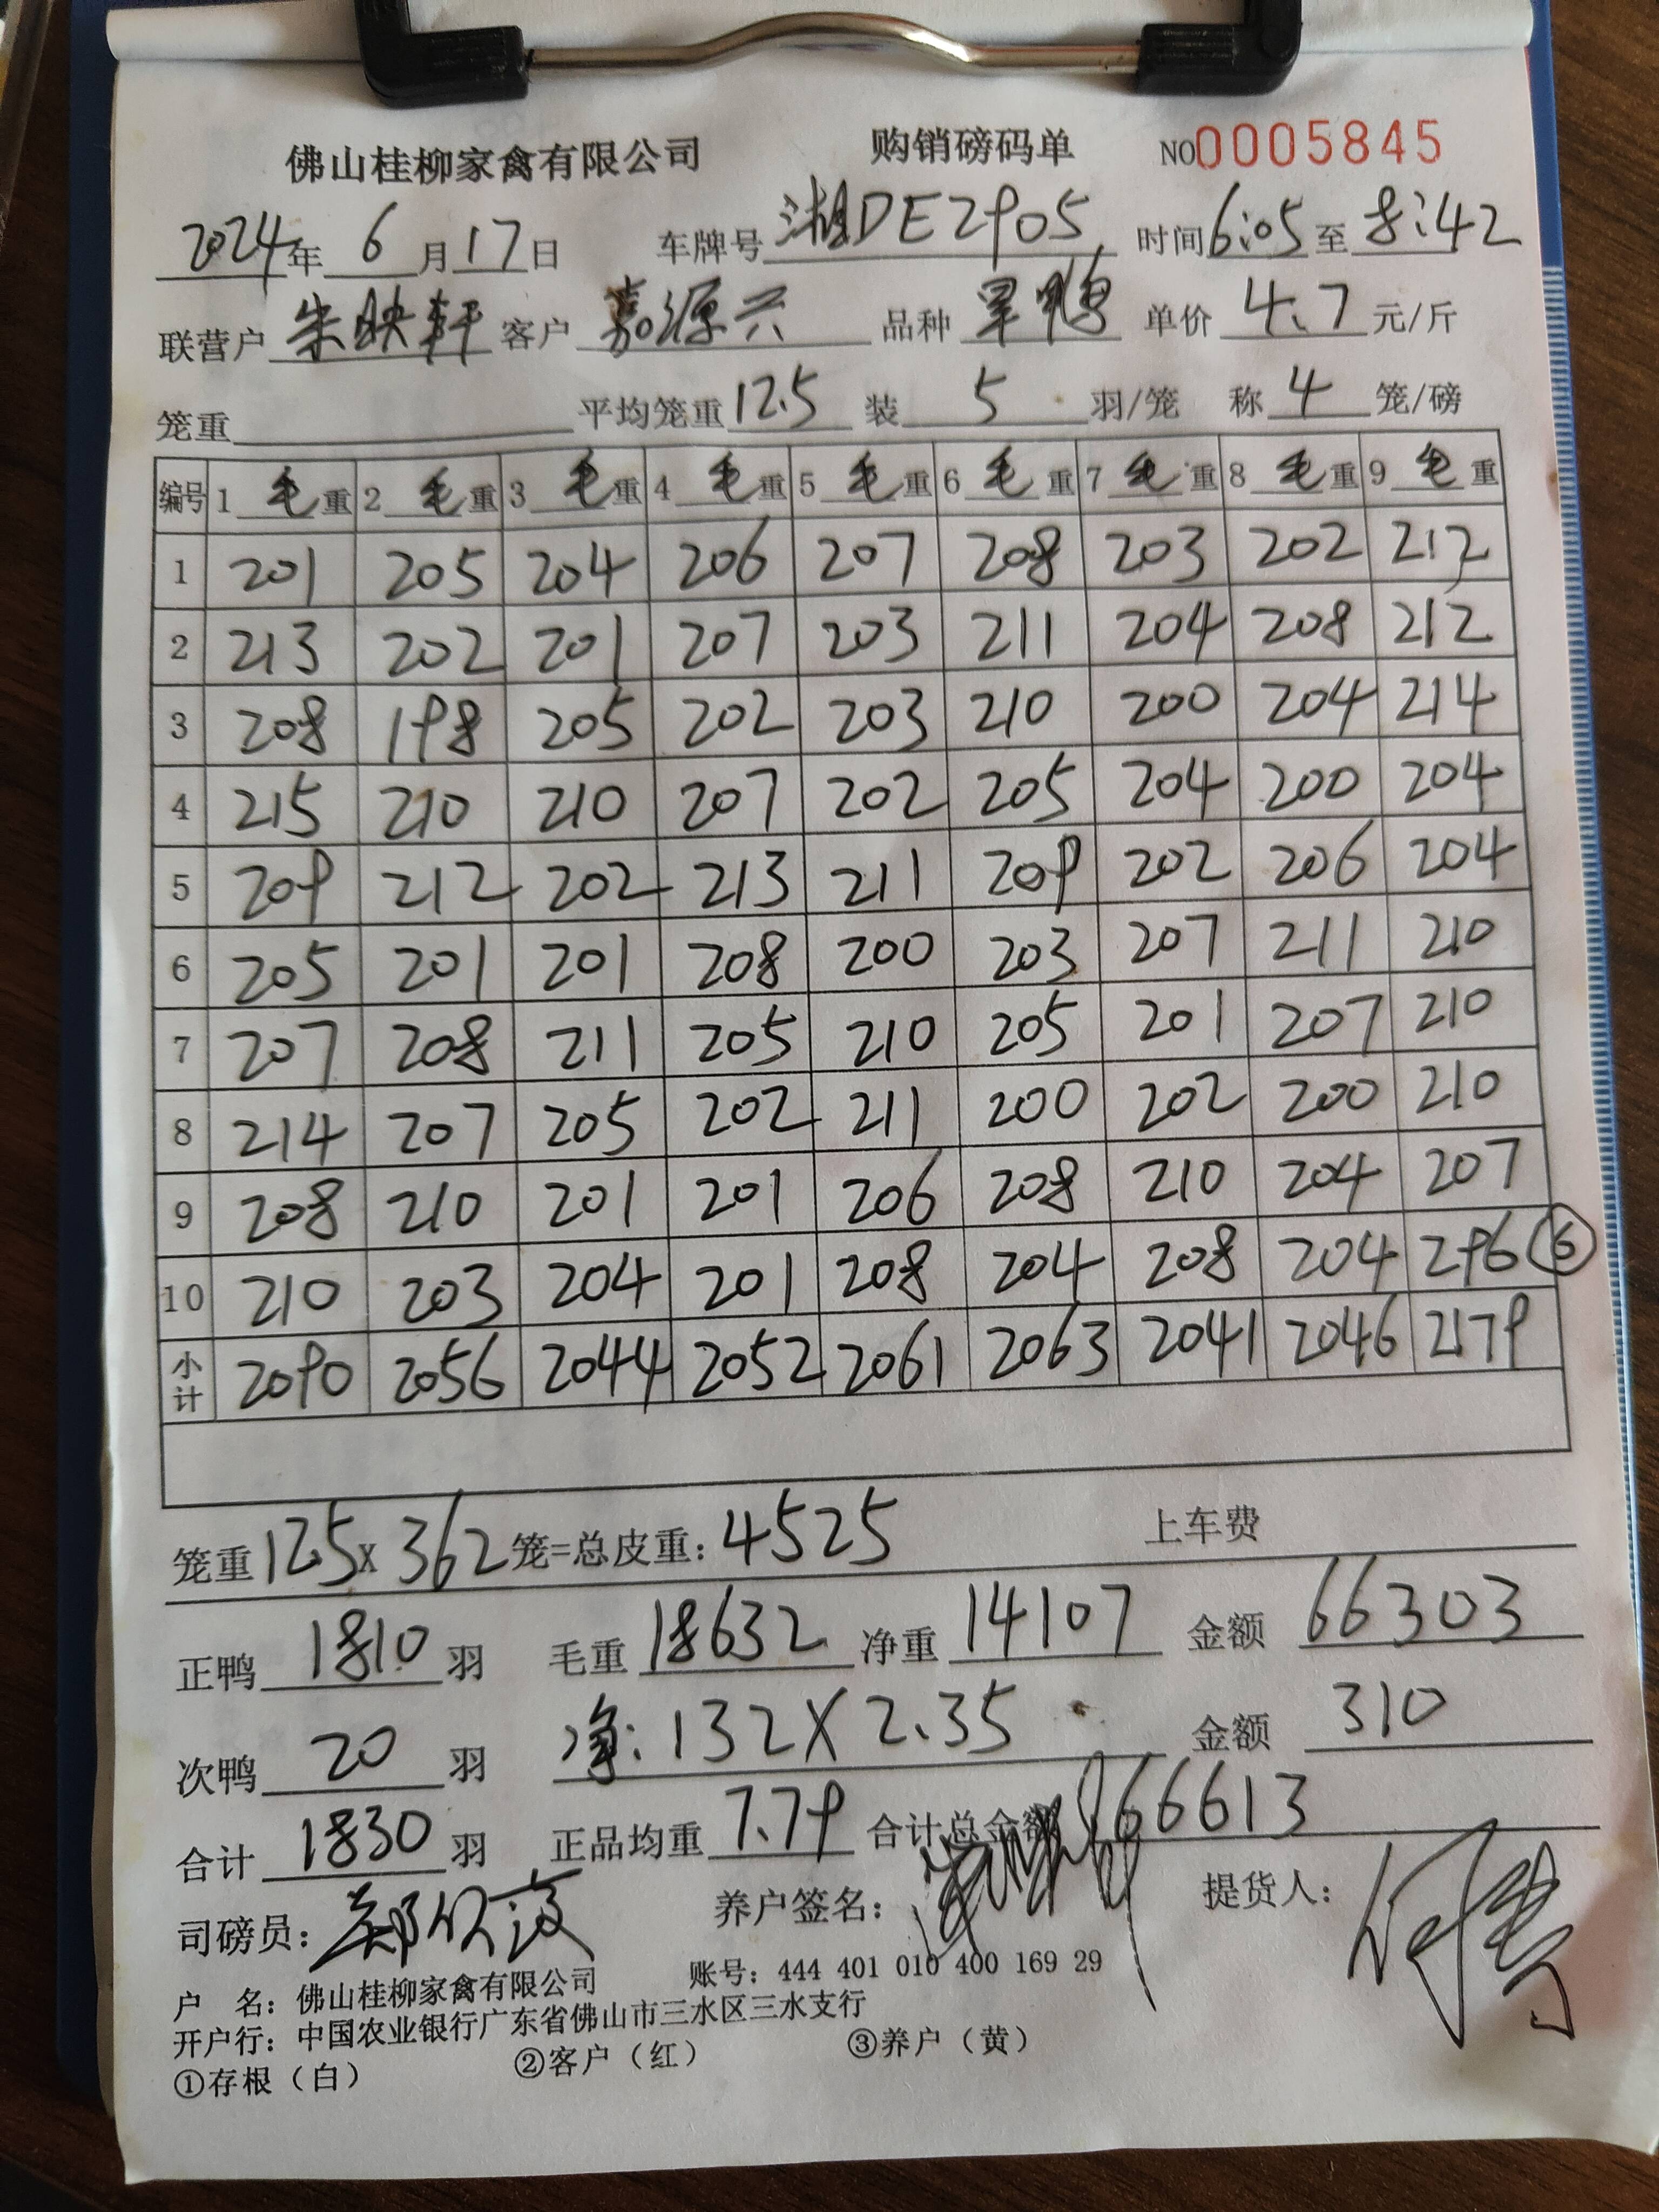 佛山桂柳家禽有限公司 购销磅码单 NO0005845
2024年 6月17日 车牌号 湘DE2905 时间6:05至8:42
联营户 朱映轩 客户 嘉源兴 品种 旱鸭 单价 4.7 元/斤
笼重 平均笼重12.5 装 5 羽/笼 称 4 笼/磅
编号 1 毛重 2 毛重 3 毛重 4 毛重 5 毛重 6 毛重 7 毛重 8 毛重 9 毛重
1 201 205 204 206 207 208 203 202 212
2 213 202 201 207 203 211 204 208 212
3 208 198 205 202 203 210 200 204 214
4 215 210 210 207 202 205 204 200 204
5 209 212 202 213 211 209 202 206 204
6 205 201 201 208 200 203 207 211 210
7 207 208 211 205 210 205 201 207 210
8 214 207 205 202 211 200 202 200 210
9 208 210 201 201 206 208 210 204 207
10 210 203 204 201 208 204 208 204 296 ⑥
小计 2090 2056 2044 2052 2061 2063 2041 2046 2179
笼重12.5x 362笼=总皮重: 4525 上车费
正鸭 1810 羽 毛重 18632 净重 14107 金额 66303
次鸭 20 羽 净: 132X2.35 金额 310
合计 1830 羽 正品均重 7.79 合计总金额 66613
司磅员: 养户签名: 提货人:
户 名: 佛山桂柳家禽有限公司 账号: 444 401 010 400 169 29
开户行: 中国农业银行广东省佛山市三水区三水支行
①存根（白） ②客户（红） ③养户（黄）